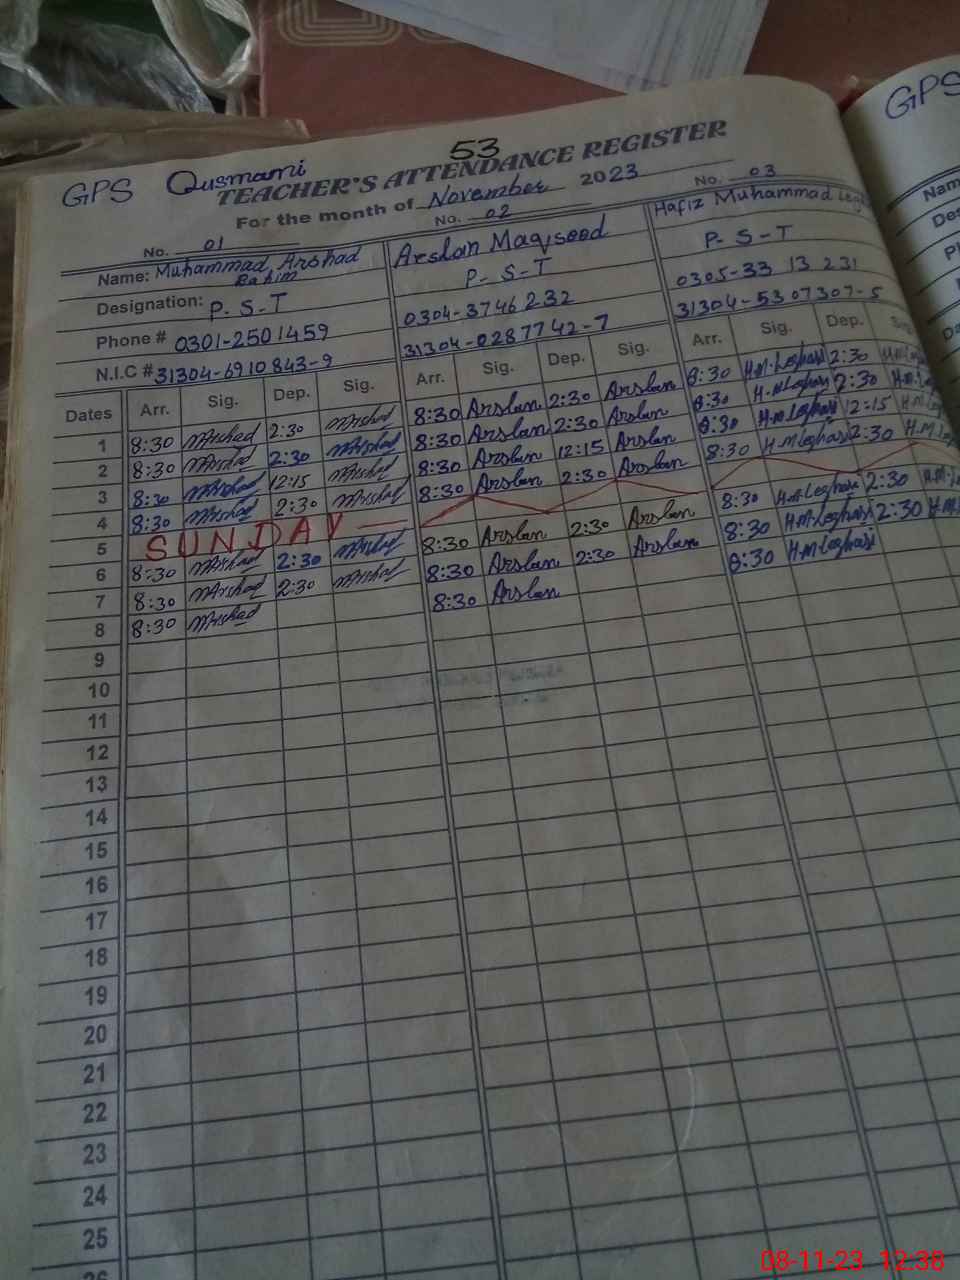 GPS
53
GPS Qusmami
TEACHER'S ATTENDANCE REGISTER
For the month of November 2023
No. 01 No. 02 No. 03
Name: Muhammad Arshad Rahim Arslan Maqsood Hafiz Muhammad
Designation: P-S-T P-S-T P-S-T
Phone # 0301-2501459 0304-3746232 0305-33 13 231
N.I.C # 31304-6910843-9 31304-0287742-7 31304-5307307-5
Dates Arr. Sig. Dep. Sig. Arr. Sig. Dep. Sig. Arr. Sig. Dep.
1 8:30 MArshad 2:30 MArshad 8:30 Arslan 2:30 Arslan 8:30 H.M.Leghari 2:30
2 8:30 MArshad 2:30 MArshad 8:30 Arslan 2:30 Arslan 8:30 H.M.Leghari 2:30
3 8:30 MArshad 12:15 MArshad 8:30 Arslan 12:15 Arslan 8:30 H.M.Leghari 12:15
4 8:30 MArshad 2:30 MArshad 8:30 Arslan 2:30 Arslan 8:30 H.M.Leghari 2:30
5 SUNDAY
6 8:30 MArshad 2:30 MArshad 8:30 Arslan 2:30 Arslan 8:30 H.M.Leghari 2:30
7 8:30 MArshad 2:30 MArshad 8:30 Arslan 2:30 Arslan 8:30 H.M.Leghari 2:30
8 8:30 MArshad 8:30 Arslan 8:30 H.M.Leghari
9
10
11
12
13
14
15
16
17
18
19
20
21
22
23
24
25
26
08-11-23 12:38